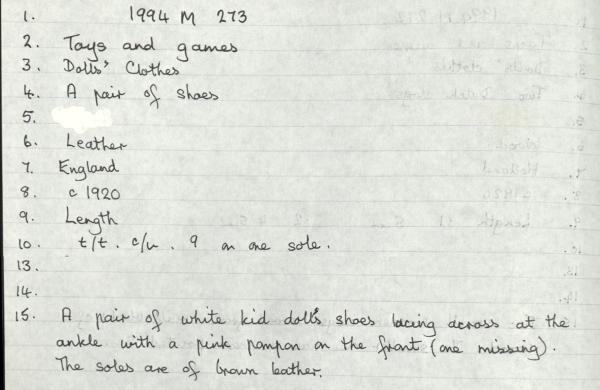 1. 1994 M 273
2. Toys and games
3. Dolls' Clothes
4. A pair of shoes
5.
6. Leather
7. England
8. c 1920
9. Length
10. t/t. c/u. 9 on one sole.
13.
14.
15. A pair of white kid doll's shoes lacing across at the
ankle with a pink pompon on the front (one missing).
The soles are of brown leather.